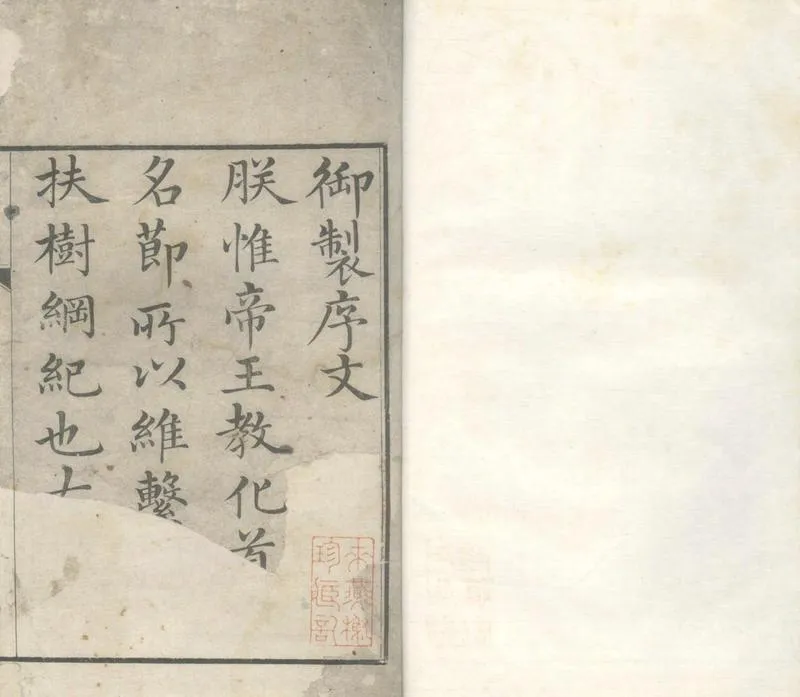 御製序文
朕惟帝王教化首
名節所以維繫
扶樹綱紀也